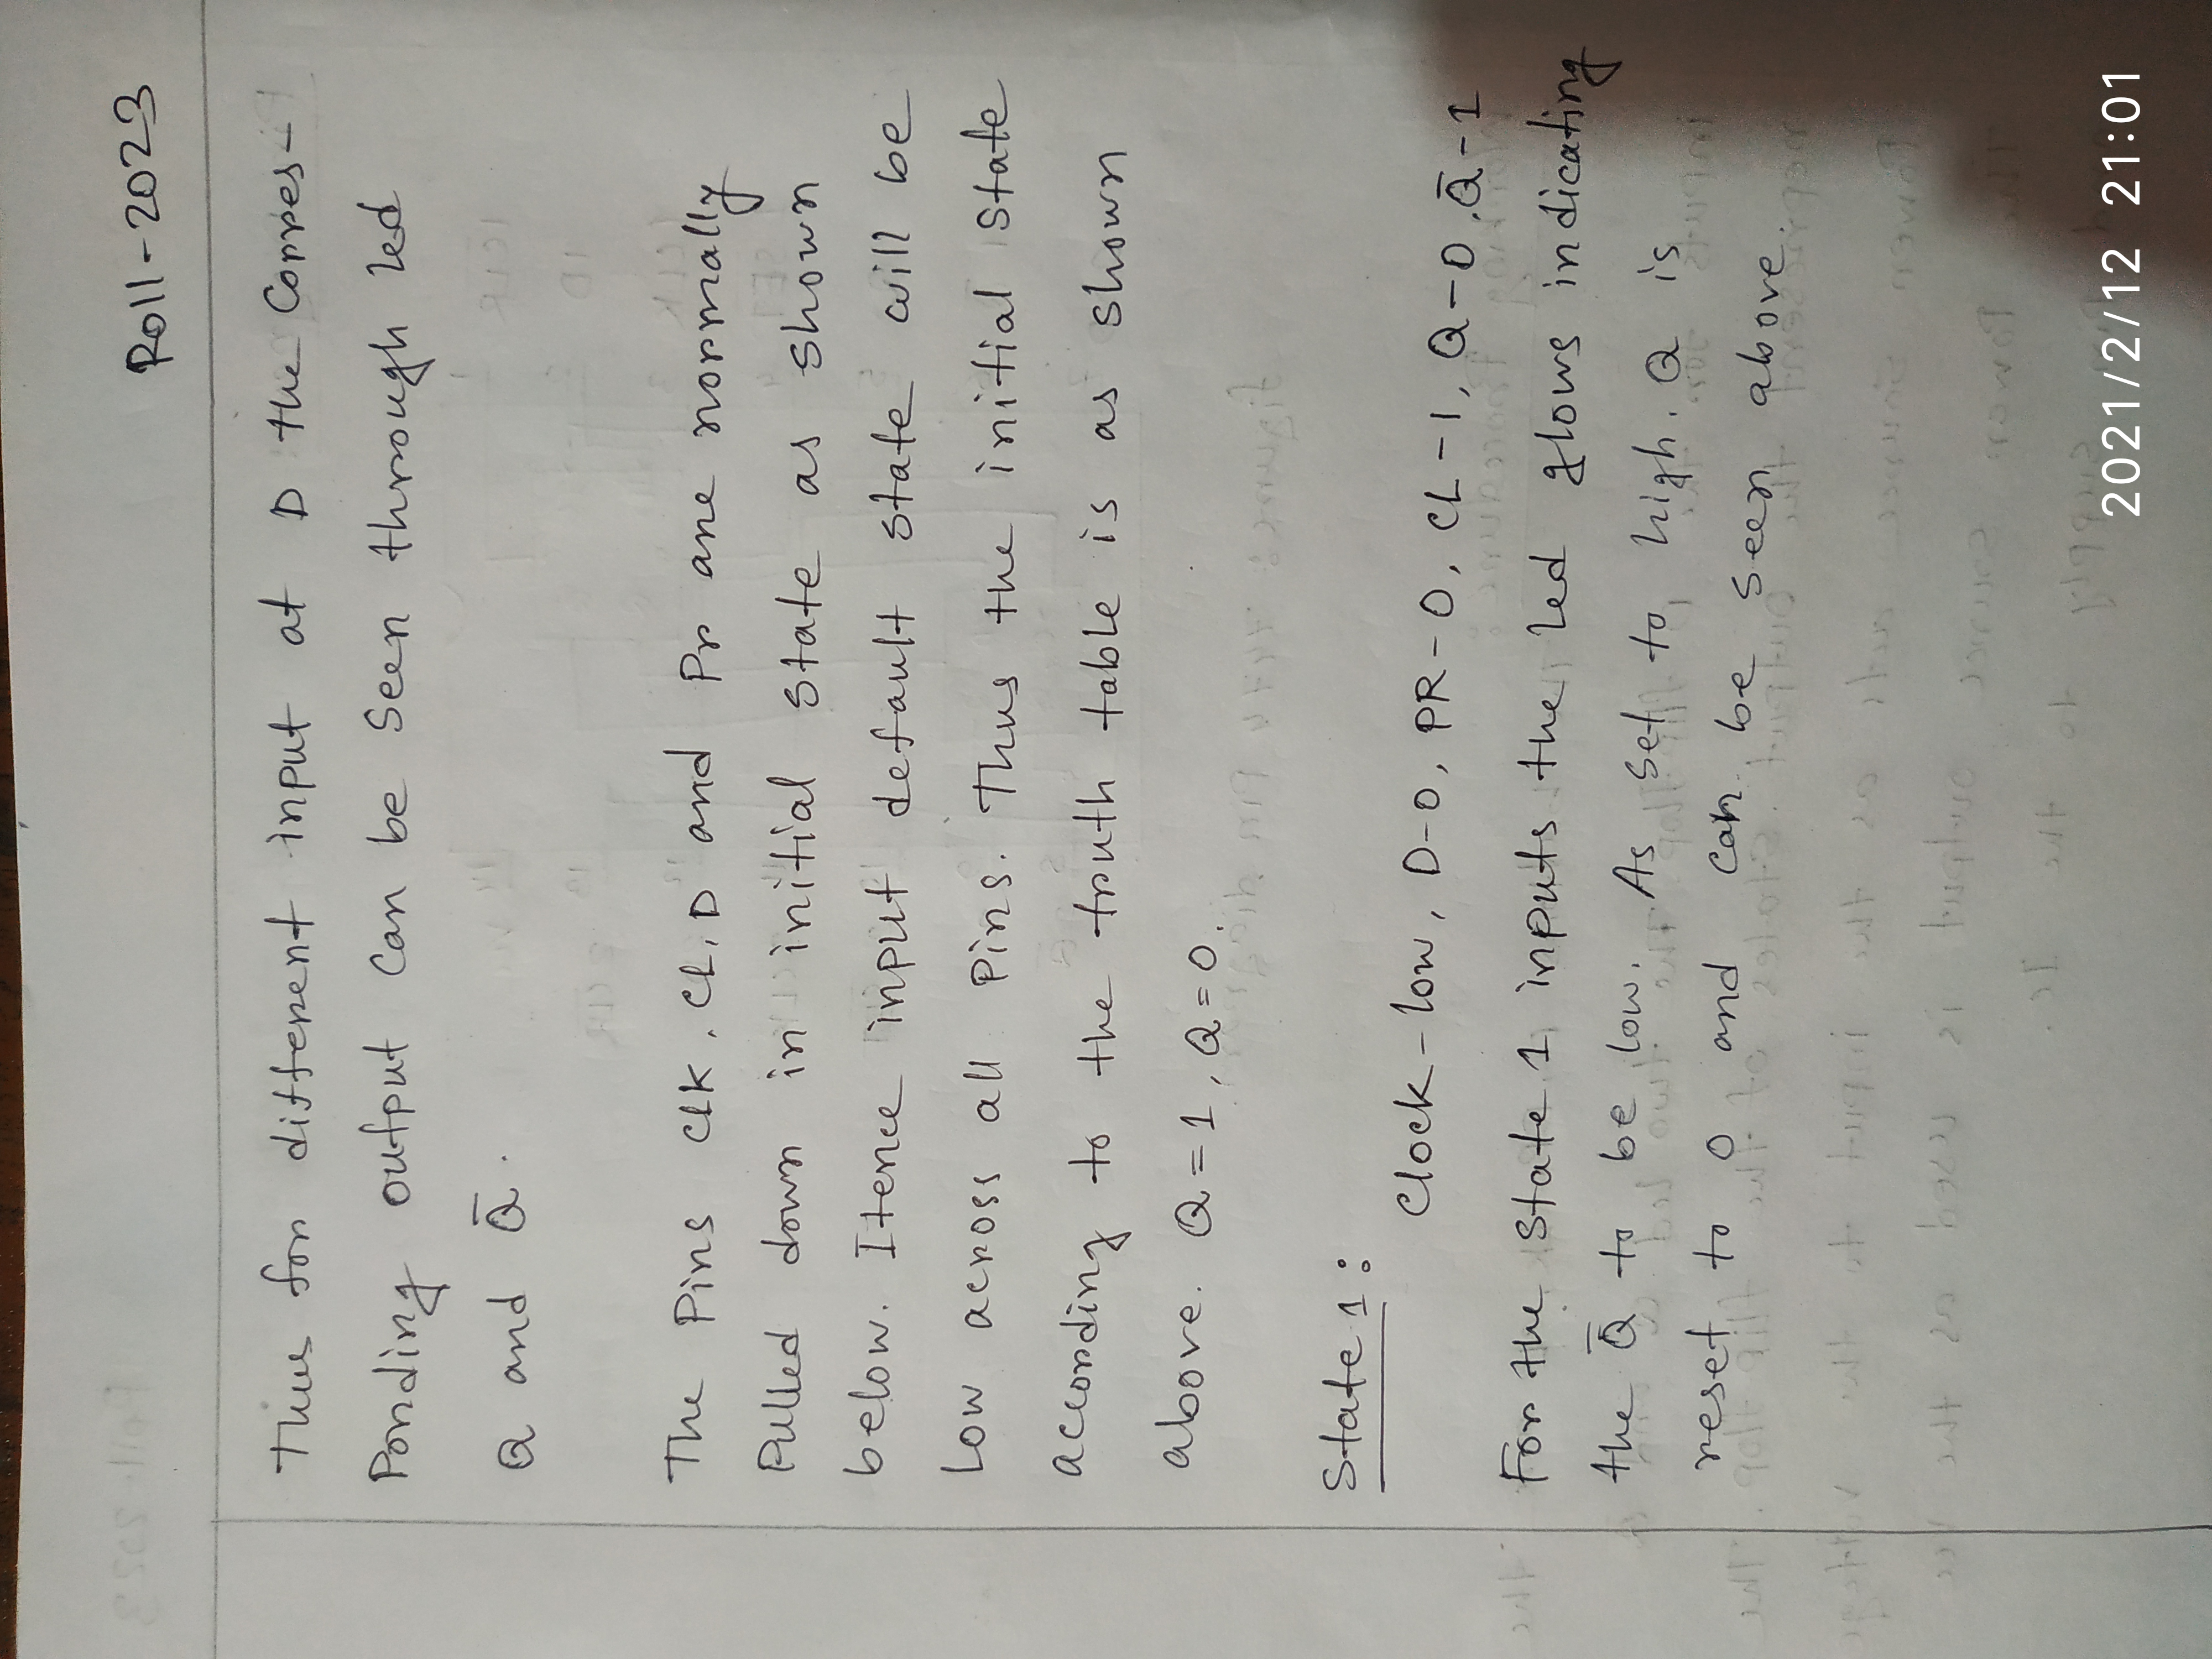 Roll-2023
Thus for different input at D the Corres-
Ponding output Can be Seen through led
Q and Q̄.
The Pins CLK, CL, D and Pr are normally
Pulled down in initial state as shown
below. Hence input default state will be
Low across all Pins. Thus the initial State
according to the truth table is as shown
above. Q=1, Q=0.
State 1:
Clock-low, D-0, PR-0, CL-1, Q-0, Q̄-1
For the State 1 inputs the led glows indicating
the Q̄ to be low. As set to high. Q is
reset to 0 and can be seen above.
2021/2/12 21:01